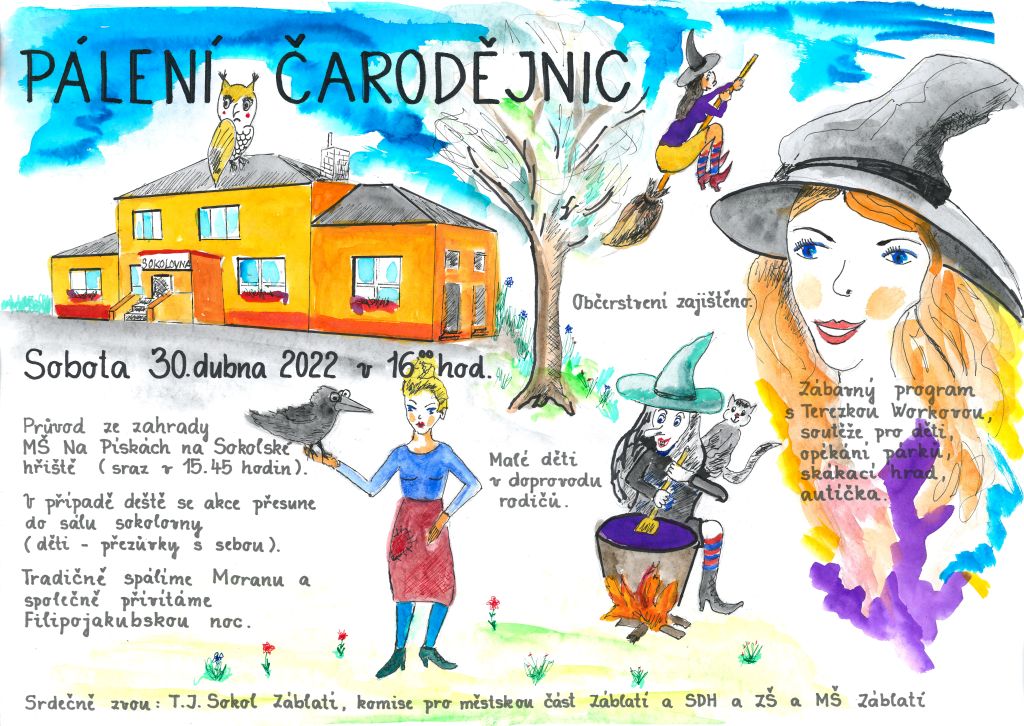 PÁLENÍ ČARODĚJNIC
SOKOLOVNA
Občerstvení zajištěno.
Sobota 30. dubna 2022 v 16⁰⁰ hod.
Průvod ze zahrady
MŠ Na Pískách na Sokolské
hřiště (sraz v 15.45 hodin).
V případě deště se akce přesune
do sálu sokolovny
(děti - přezůvky s sebou).
Tradičně spálíme Moranu a
společně přivítáme
Filipojakubskou noc.
Malé děti
v doprovodu
rodičů.
Zábavný program
s Terezkou Workovou,
soutěže pro děti,
opékání párků,
skákací hrad,
autíčka.
Srdečně zvou: T.J. Sokol Záblatí, komise pro městskou část Záblatí a SDH a ZŠ a MŠ Záblatí